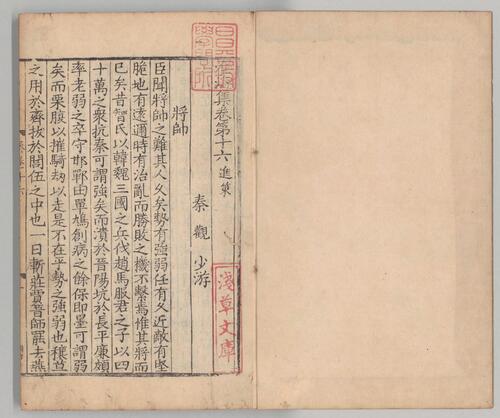 集卷第十六 進策
秦觀 少游
淺草文庫
將帥
臣聞將帥之難其人久矣勢有強弱任有久近敵有堅
脆地有遠邇時有治亂而勝敗之機不繫焉惟其將而
已矣昔智氏以韓魏三國之兵伐趙馬服君之子以四
十萬之衆抗秦可謂強矣而潰於晉陽坑於長平廉頗
率老弱之卒守邯鄲田單鳩創病之餘保即墨可謂弱
矣而栗腹以摧騎劫以走是不在乎勢之強弱也穰苴
之用於齊拔於閭伍之中也一日斬莊賈晉師罷去燕